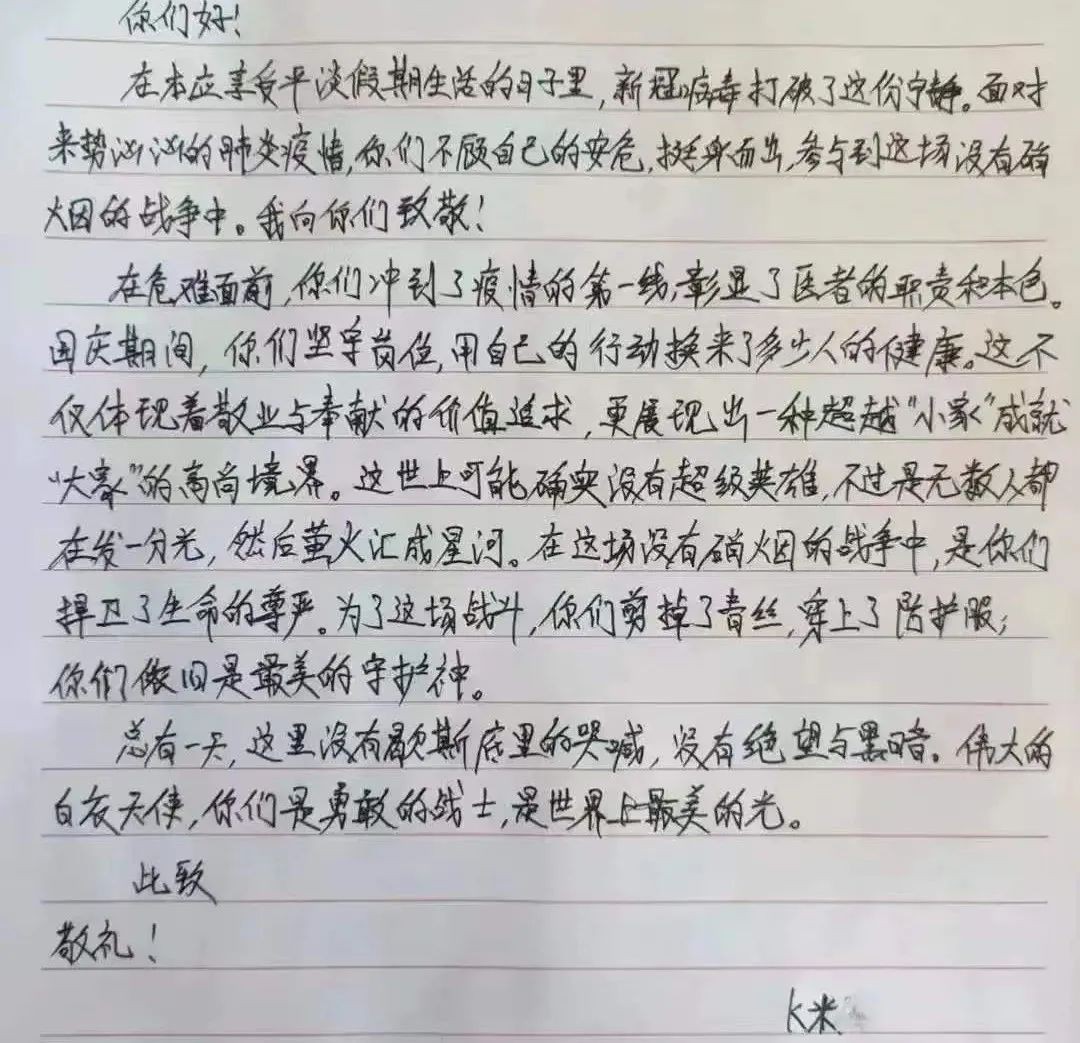 你们好!
在本应享受平淡假期生活的日子里,新冠病毒打破了这份宁静。面对
来势汹汹的肺炎疫情,你们不顾自己的安危,挺身而出,参与到这场没有硝
火因的战争中。我向你们致敬!
在危难面前,你们冲到了疫情的第一线,彰显了医者的职责和本色。
国庆期间,你们坚守岗位,用自己的行动换来了多少人的健康。这不
仅体现着敬业与奉献的价值追求,更展现出一种超越“小家”成就
“大家”的高尚境界。这世上可能确实没有超级英雄,不过是无数人都
在发一分光,然后萤火汇成星河。在这场没有硝烟的战争中,是你们
捍卫了生命的尊严。为了这场战斗,你们剪掉了青丝,穿上了防护服;
你们依旧是最美的守护神。
总有一天,这里没有歇斯底里的哭喊,没有绝望与黑暗。伟大的
白衣天使,你们是勇敢的战士,是世界上最美的光。
此致
敬礼!
k米